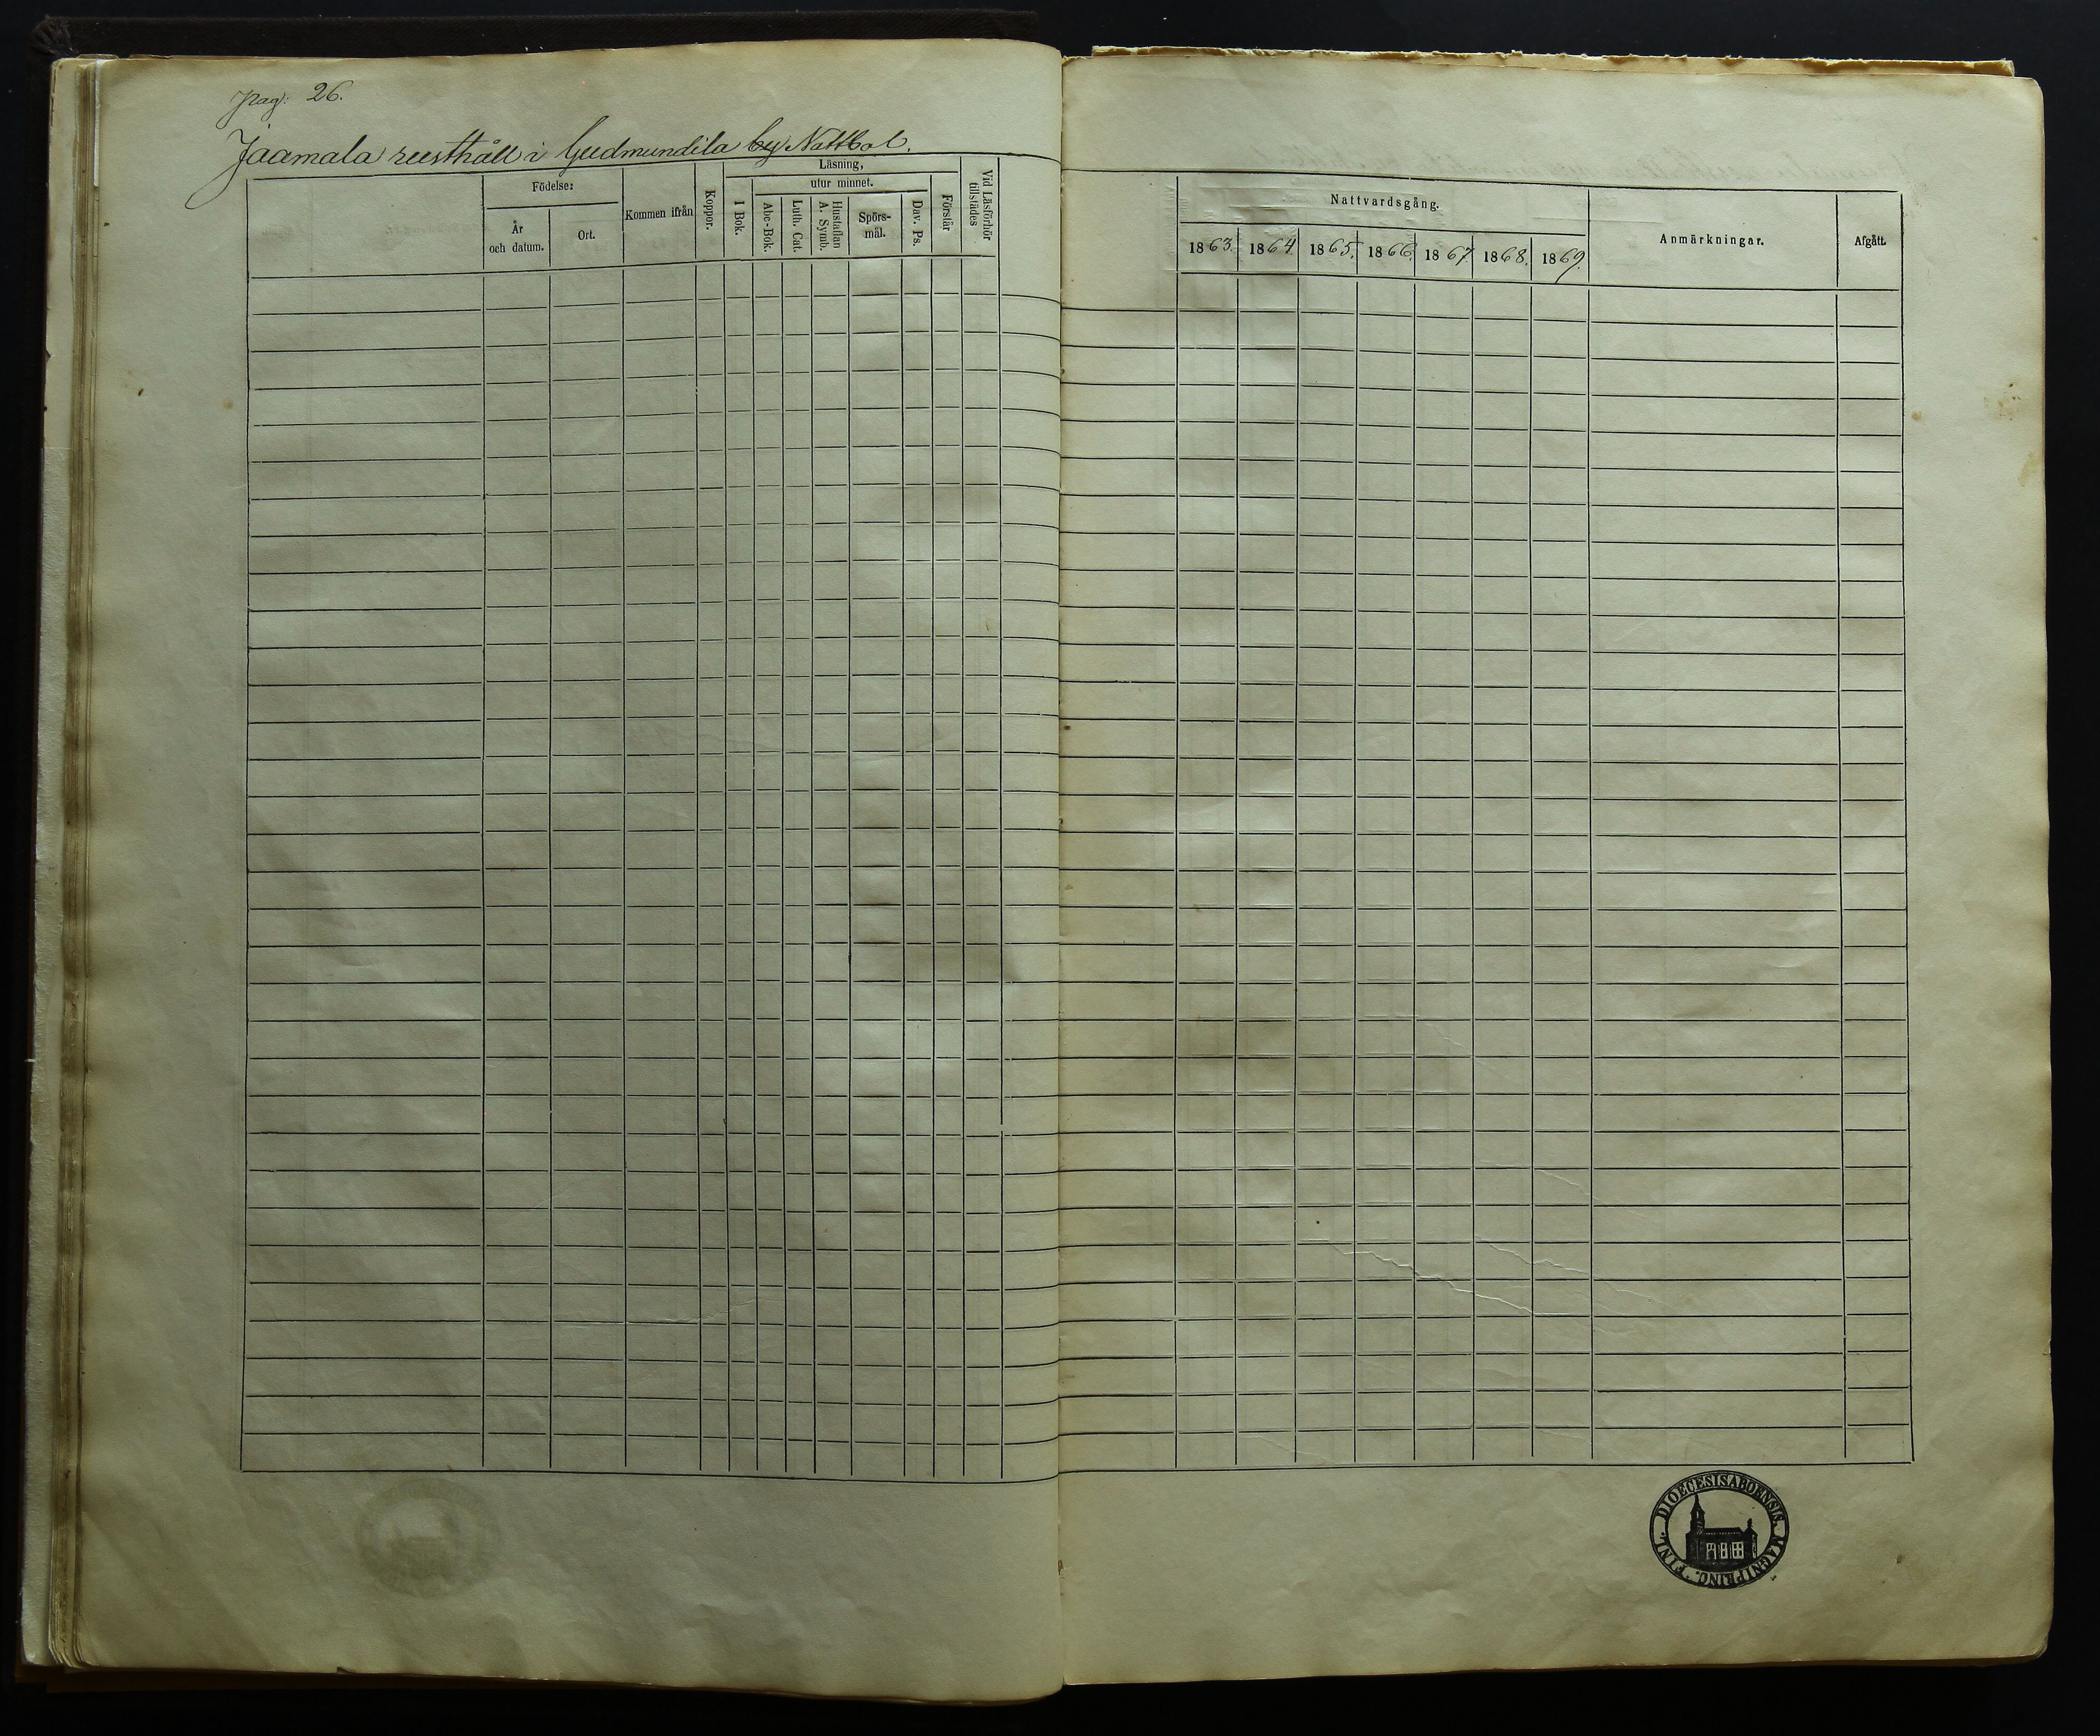 Pag: 26.
Jaamala rusthåll i Gudmundila by Nattbol.
Födelse:
År
och datum.
Ort.
Kommen ifrån
Koppor.
Läsning,
utur minnet.
I Bok.
Abc-Bok.
Luth. Cat.
Hustaflan
A. Symb.
Spörs-
mål.
Dav. Ps.
Förstår
Vid Läsförhör
tillstädes
Nattvardsgång.
1863. 1864. 1865. 1866. 1867. 1868. 1869.
Anmärkningar.
Afgått.
DIOECESIS ABOENSIS. MAGNI PRINC. FINL.